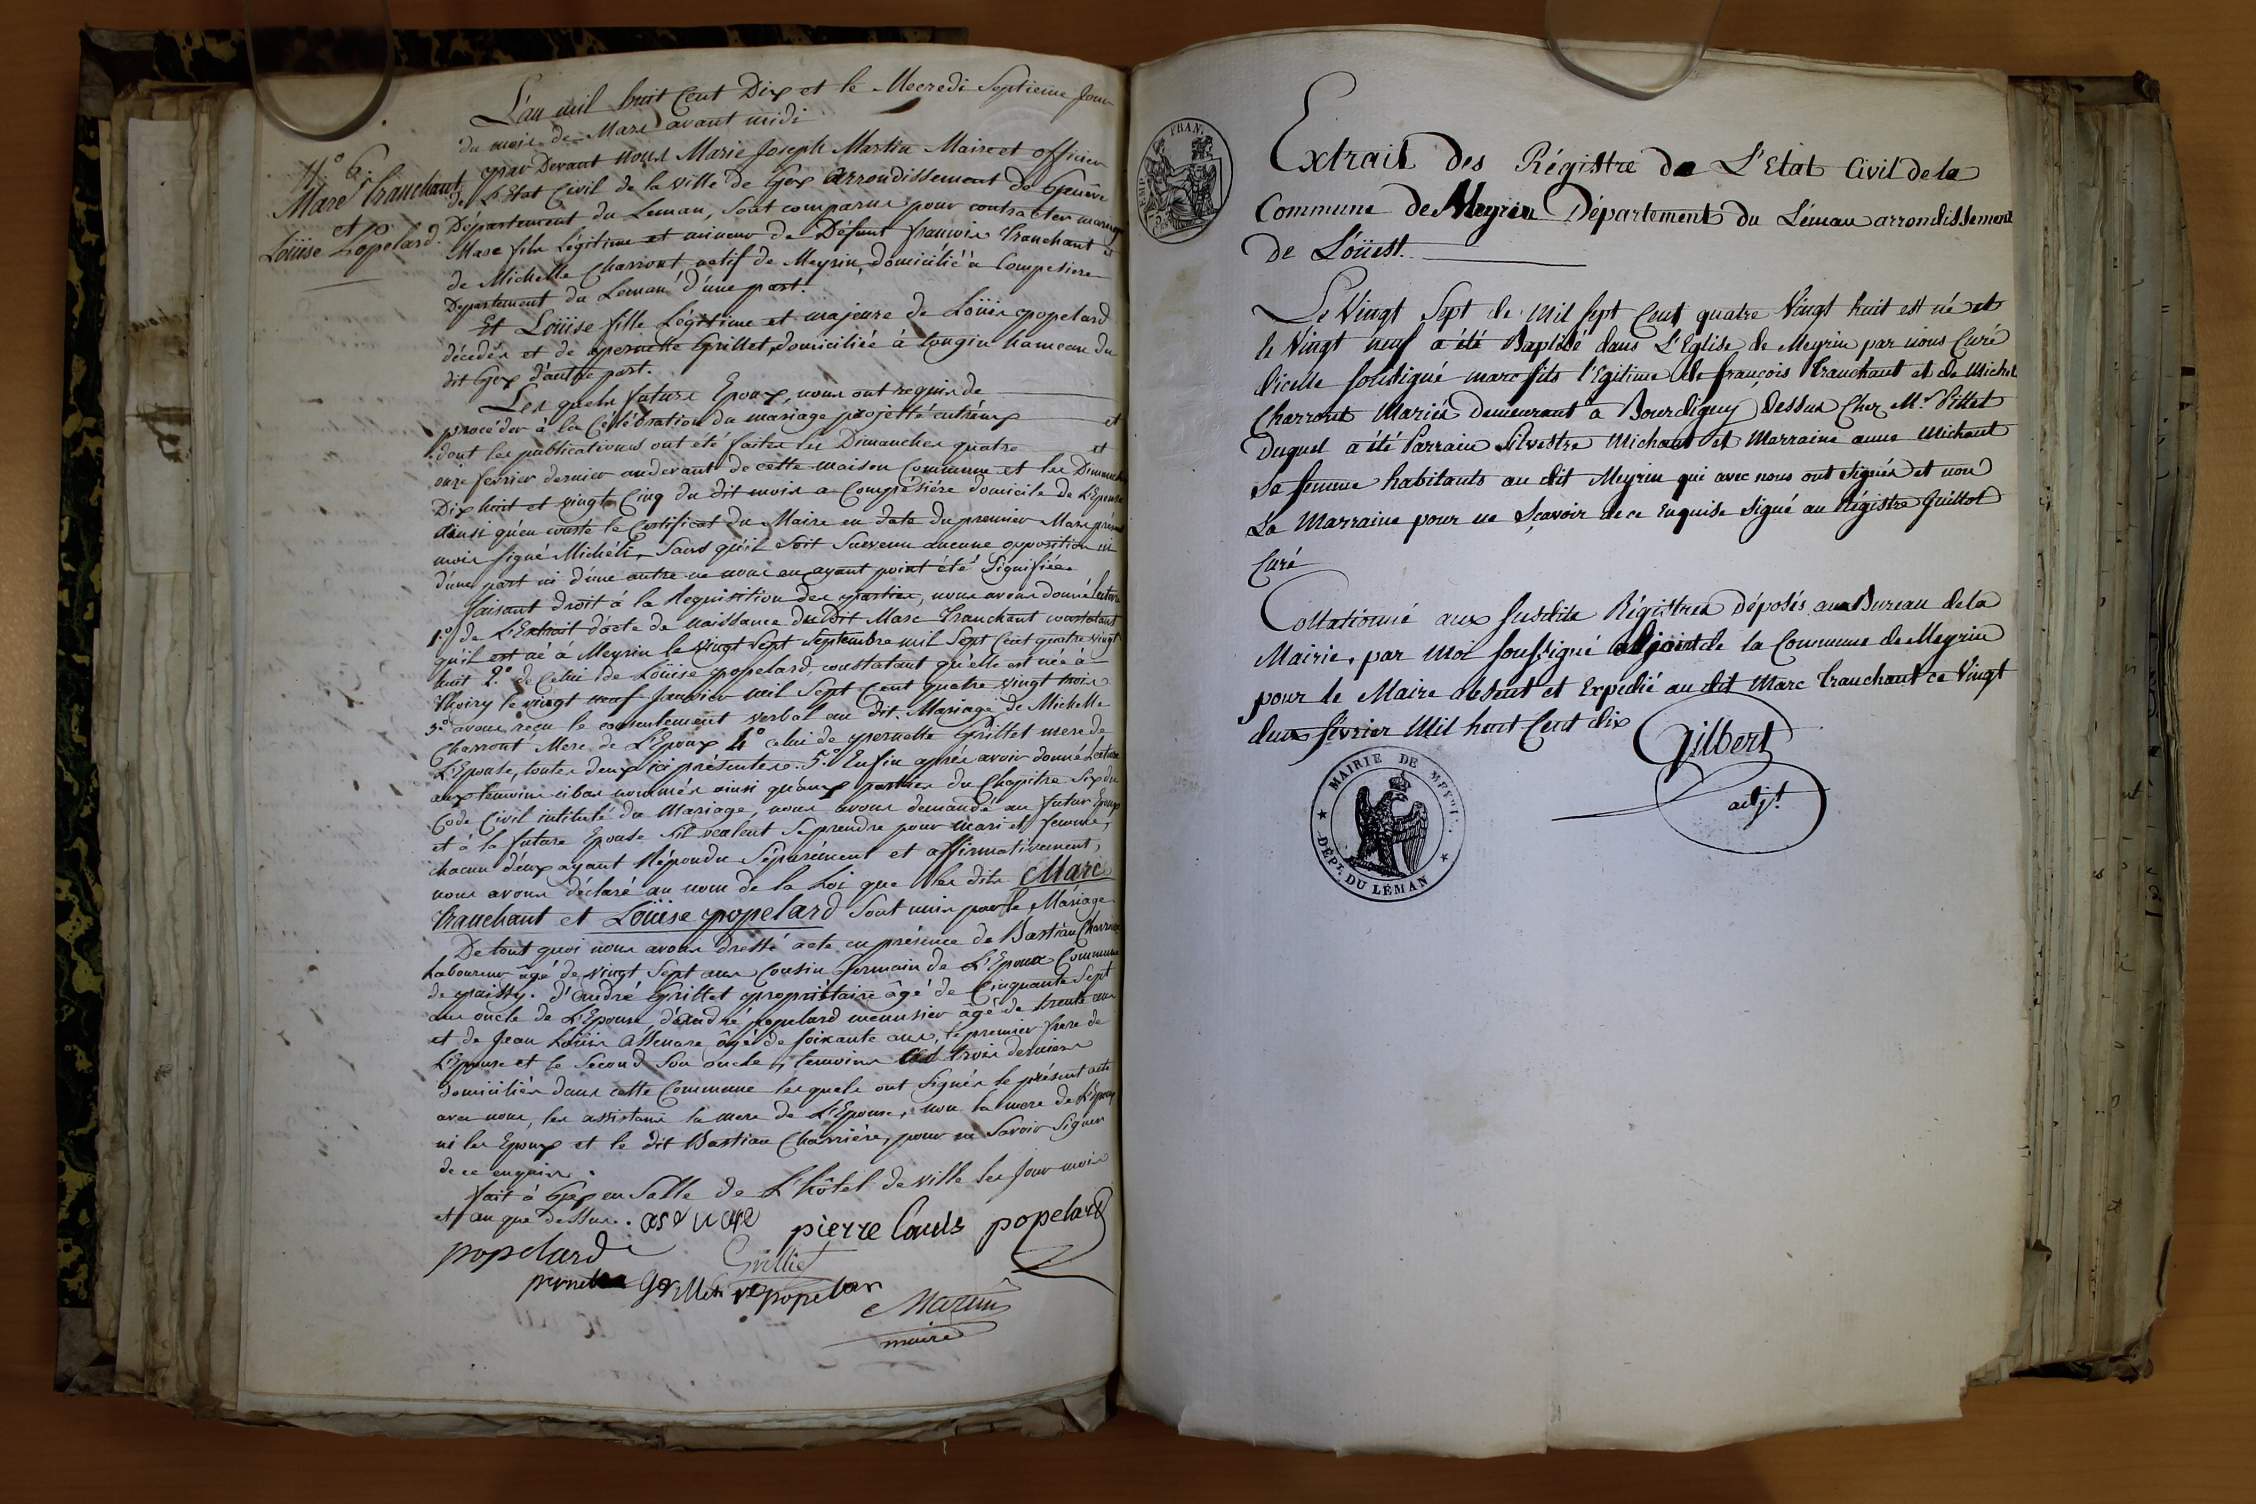 L'an mil huit Cent Dix et le Mecredi Septieme Jour
du mois de Mars avant midi
N° 6.
Marc Tranchant
et
Loüise Popelard.
par Devant nous Marie Joseph Martin Maire et officier
de L'Etat Civil de la ville de Gex arrondissement de Genève
Département du Leman, sont comparus pour contracter mariage
Marc fils légitime et mineur de Défunt françois Tranchant et
de Michelle Charront natif de Meyrin, domicilié à Compesiere
Département du Leman d'une part.
Et Loüise fille Légitime et majeure de Loüis popelard
décédés et de pernette Grillet, domiciliée à tougin hameau du
dit Gex d'autre part.
Les quels futurs Epoux, nous ont requis de
procéder à la Célébration du mariage projetté entréux et
dont les publications ont été faites les Dimanches quatre et
onze fevrier dernier au devant de cette maison Commune et les Dimanche
Dix huit et vingt Cinq du dit mois a Compesiére domicile de L'Epoux
ainsi qu'en conste le Certificat du Maire en date du premier Mars présent
mois signé Michéli, Sans qu'il soit Survenu aucune opposition ni
d'une part ni d'une autre ne nous en ayant point été Signifiée
faisant droit à la Requisition des parties, nous avons donné lecture
1° de L'Extrait d'acte de naissance du Dit Marc Tranchant constatant
qu'il est né à Meyrin le vingt Sept Septembre mil Sept Cent quatre vingt
huit 2° de Celui de Loüise popelard, constatant qu'elle est née à
Thoiry le vingt neuf Janvier mil Sept Cent quatre vingt trois
3° avons reçu le consentement verbal au dit Mariage de Michelle
Charront Mere de L'Epoux 4° celui de pernette Grillet mere de
L'Epouse, toutes deux ici présentes. 5° Enfin aprés avoir donné Lecture
aux temoins cibas nommés ainsi qu'aux parties du Chapitre Six du
Code Civil intitulé du Mariage, nous avons demandé au futur Epoux
et à la future Epouse s'il veulent Se prendre pour mari et femme,
chacun d'eux ayant Répondu Séparément et affirmativement,
nous avons déclaré au nom de la Loi que les dits Marc
Tranchant et Loüise popelard Sont unis par le Mariage
De tout quoi nous avons Dressé acte en présence de Bastian Charriere
Laboureur âgé de vingt Sept ans Cousin Germain de L'Epoux Commune
de d'André Grillet propriétaire âgé de Cinquante Sept
ans oncle de L'Epouse, d'andré popelard menuisier âgé de trente ans
et de Jean Loüis âgé de soixante ans, le premier frere de
L'Epouse et le Second Son oncle, temoins les trois derniers
domiciliés dans cette Commune les quels ont Signés le présent acte
avec nous, les assistans la mere de L'Epouse, non la mere de L'Epoux
ni les Epoux et le dit Bastian Charriére, pour ne Savoir Signer
de ce enquis.
fait à Gex en Salle de L'hôtel de ville les Jour mois
et an que dessus.
pierre louis popelard
popelard
Grilliet
pernette Grillet popelar
Martin
maire
EMP. FRAN.
Extrait des Régistre de L'Etat Civil de la
Commune de Meyrin Département du Léman arrondissement
de L'oüest.
Le Vingt Sept de Mil Sept Cent quatre Vingt huit est né et
le Vingt neuf a été Baptisé dans L'Eglise de Meyrin par nous Curé
d'icelle soussigné marc fils l'Egitime de françois Tranchant et de Michel
Charront Mariés demeurant a Bourdigny Dessus Chez Mr. Pittet
Duquel a été Parrain Silvestre Michaut et Marraine anne Michaut
Sa femme habitants au dit Meyrin qui avec nous ont signés et non
La Marraine pour ne Sçavoir de ce Enquise signé au Régistre Guillot
Curé
Collationné aux Susdits Régistres Déposés au Bureau de la
Mairie, par Moi soussigné adjoint de la Commune de Meyrin
pour le Maire absent et Expédié au dit Marc Tranchant ce Vingt
deux février Mil huit Cent dix
Gilbert
adjt.
MAIRIE DE MEYRIN
DÉPT. DU LÉMAN